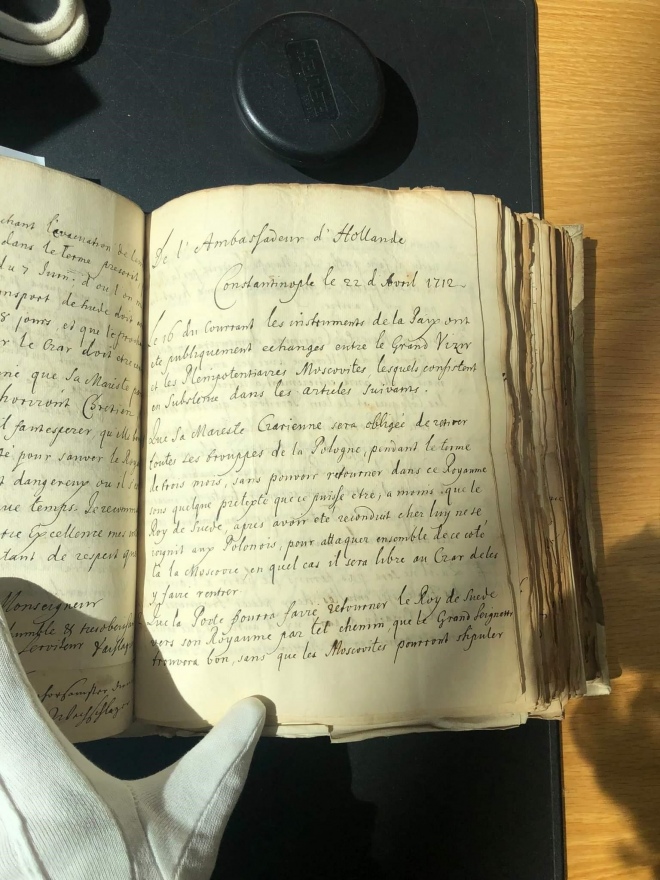 chant l'evacuation de la
dans le Terme prescrit
du 7 Juin; d'ou l'on
transport de hude doit
8 jours, et que le
r le Czar doit
né que sa Maiste
horriront Chretien
il fait esperer, qu
té pour sauver le Roy
t dangereux ou il s
que temps. Je recomm
tre Excellence mes
tant de respect que
Monseigneur
humble & tresobeiss
Serviteur
De l'Ambassadeur d'Hollande
Constantinople le 22 d'Avril 1712.
Le 16 du Courrant les instruments de la Paix ont
eté publiquement echangés entre le Grand Vizir
et les Plenipotentiaires Moscovites lesquels consistent
en Substense dans les articles suivants.
Que Sa Maieste Czarienne sera obligée de retirer
toutes ses trouppes de la Pologne, pendant le terme
de trois mois, sans pouvoir retourner dans ce Royaume
sous quelque pretexte que ce puisse etre, a moins que le
Roy de Suede, apres avoir eté reconduit chez luy ne se
joignit aux Polonois, pour attaquer ensemble de ce coté
la la Moscovie, en quel cas il sera libre au Czar de les
y faire rentrer.
Que la Porte pourra faire retourner le Roy de Suede
vers son Royaume par tel chemin, que le Grand Seigneur
trouvera bon, sans que les Moscovites pourront stipuler